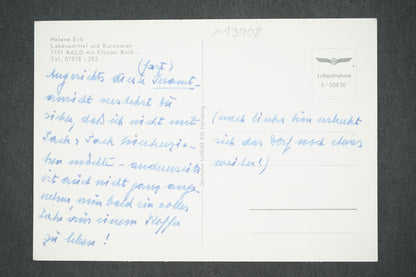 x13908
Helene Eck
Lebensmittel und Kurzwaren
7791 WALD mit Kloster Wald
Tel. 07578 - 283
Luftaufnahme
6/30830
(fast)
Angesichts dieser Gesamt-
ansicht verstehst du
sicher, daß ich nicht mit
Sack & Pack hinunterzie-
hen möchte - andererseits
ist auch nicht ganz ange-
nehm, nun bald ein volles
Jahr aus einem Koffer
zu leben!
Deutsche Luftbild KG Hamburg
(nach links hin erstreckt
sich das Dorf noch etwas
weiter!)